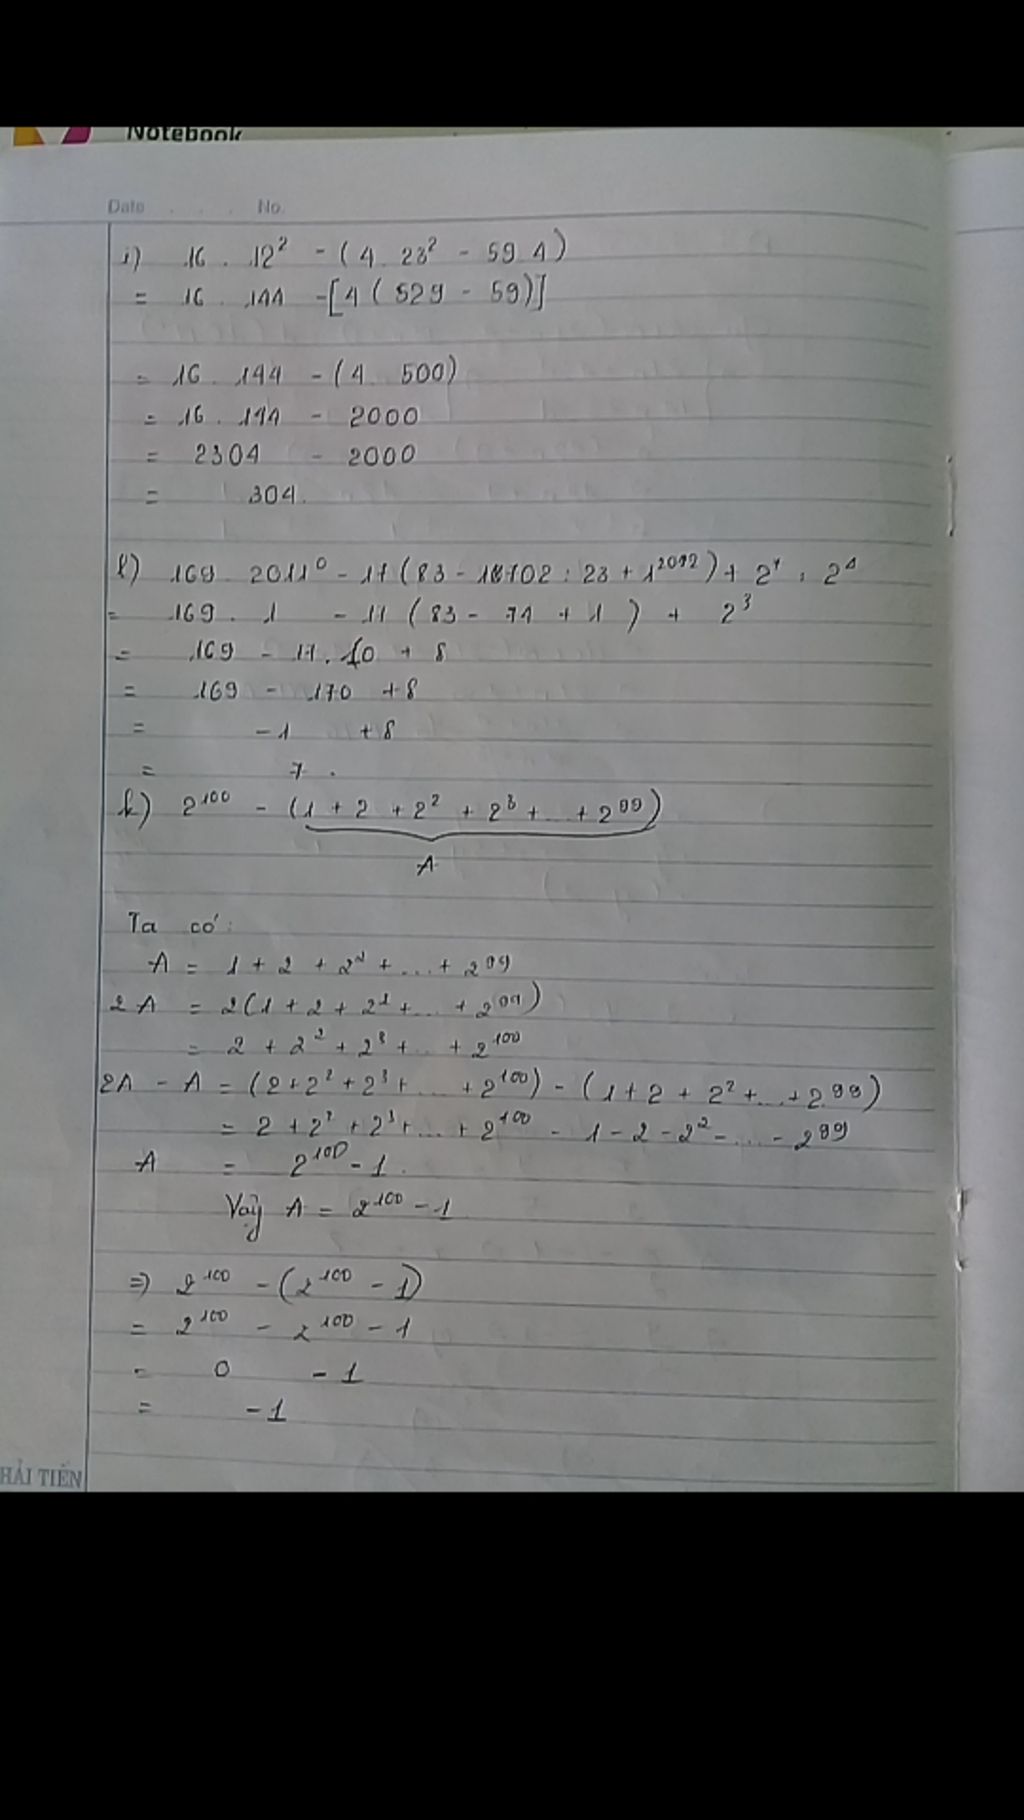 Notebook
Date . . . No.
i) 16 . 12² - (4 . 23² - 59 4)
= 16 . 144 - [4 ( 529 - 59)]
= 16 . 144 - (4 500)
= 16 . 144 - 2000
= 2304 - 2000
= 304.
l) 169 2011⁰ - 17 (83 - 1702 : 23 + 1²⁰¹²) + 2⁷ : 2⁴
= 169 . 1 - 17 (83 - 74 + 1 ) + 2³
= 169 - 17 . 10 + 8
= 169 - 170 + 8
= - 1 + 8
= 7 .
k) 2¹⁰⁰ - (1 + 2 + 2² + 2³ + ... + 2⁹⁹)
A
Ta có:
A = 1 + 2 + 2² + ... + 2⁹⁹
2A = 2(1 + 2 + 2² + ... + 2⁹⁹)
= 2 + 2² + 2³ + ... + 2¹⁰⁰
2A - A = (2 + 2² + 2³ + ... + 2¹⁰⁰) - (1 + 2 + 2² + ... + 2⁹⁹)
= 2 + 2² + 2³ + ... + 2¹⁰⁰ - 1 - 2 - 2² - ... - 2⁹⁹
A = 2¹⁰⁰ - 1.
Vậy A = 2¹⁰⁰ - 1
=> 2¹⁰⁰ - (2¹⁰⁰ - 1)
= 2¹⁰⁰ - 2¹⁰⁰ - 1
= 0 - 1
= - 1
HẢI TIẾN